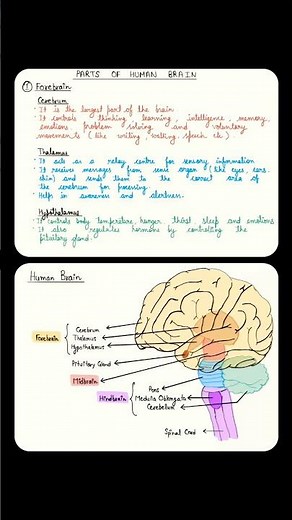 PARTS OF HUMAN BRAIN
① Forebrain
Cerebrum
• It is the largest part of the brain
• It controls thinking, learning, intelligence, memory,
emotions, problem solving and voluntary
movements (like writing, walking, speech etc).
Thalamus
• It acts as a relay centre for sensory information
• It receives messages from sense organ (like eyes, ears,
skin) and sends them to the correct area of
the cerebrum for processing.
• Helps in awareness and alertness.
Hypothalamus
• It controls body temperature, hunger, thirst, sleep and emotions
• It also regulates hormone by controlling the
pituitary gland.
Human Brain
Forebrain
Cerebrum
Thalamus
Hypothalamus
Pituitary Gland
Midbrain
Hindbrain
Pons
Medulla Oblongata
Cerebellum
Spinal Cord